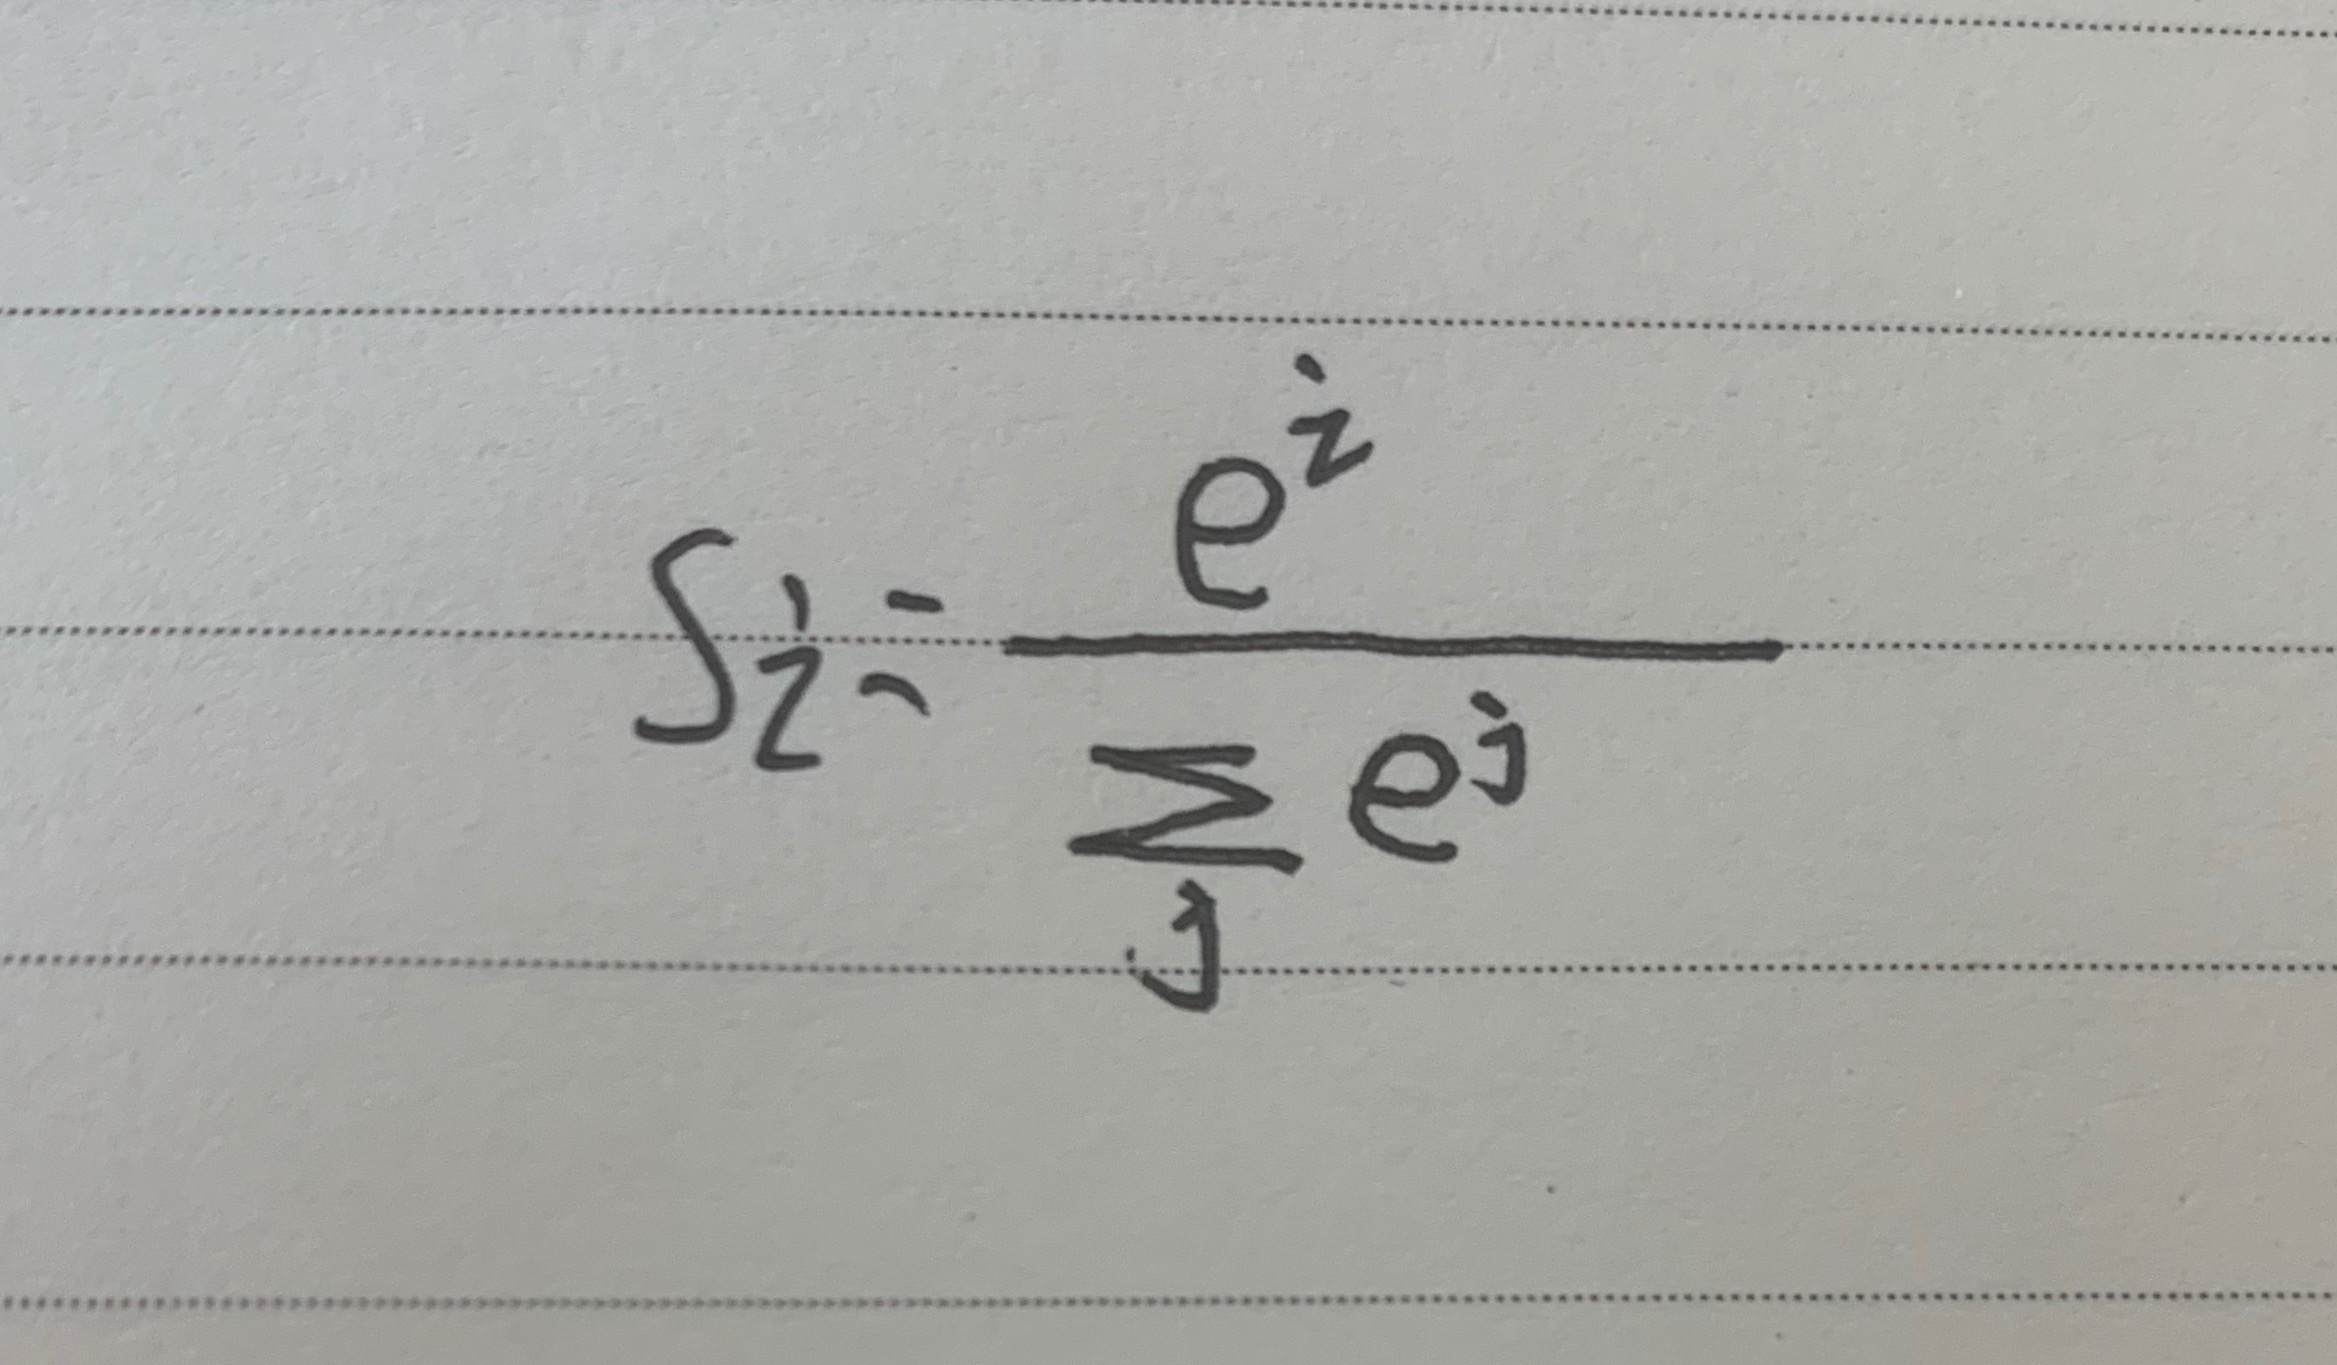 S_i = \frac{e^i}{\sum_j e^j}